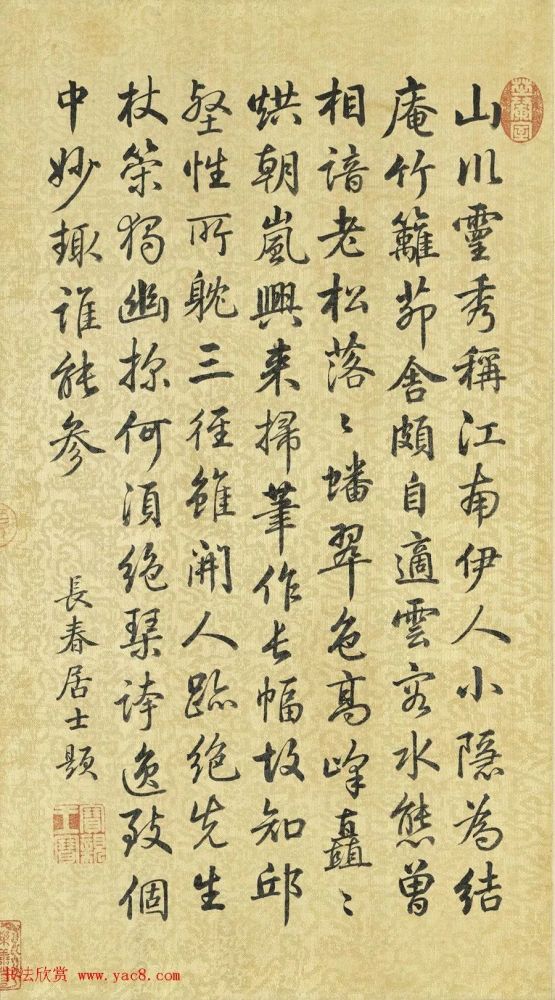 山川靈秀稱江南伊人小隱為結
庵竹籬茆舍頗自適雲容水態曽
相諳老松落〻蟠翠色高峰矗〻
烘朝嵐興来掃筆作長幅故知邱
壑性所躭三徑雖開人跡絶先生
杖策獨幽探何須絶琴誇逸致個
中妙趣誰能參
長春居士題
书法欣赏 www.yac8.com